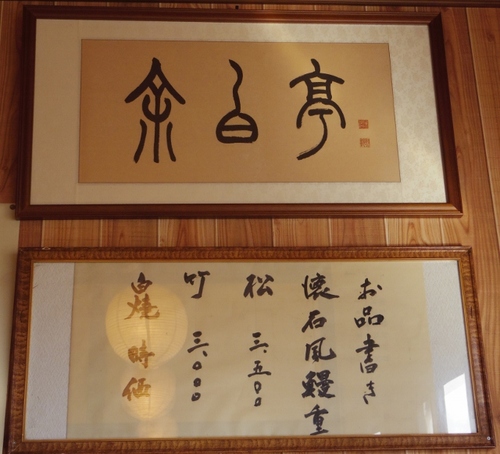 余白亭
お品書き
懐石風鰻重
松 三、五〇〇
竹 三、〇〇〇
白焼 時価